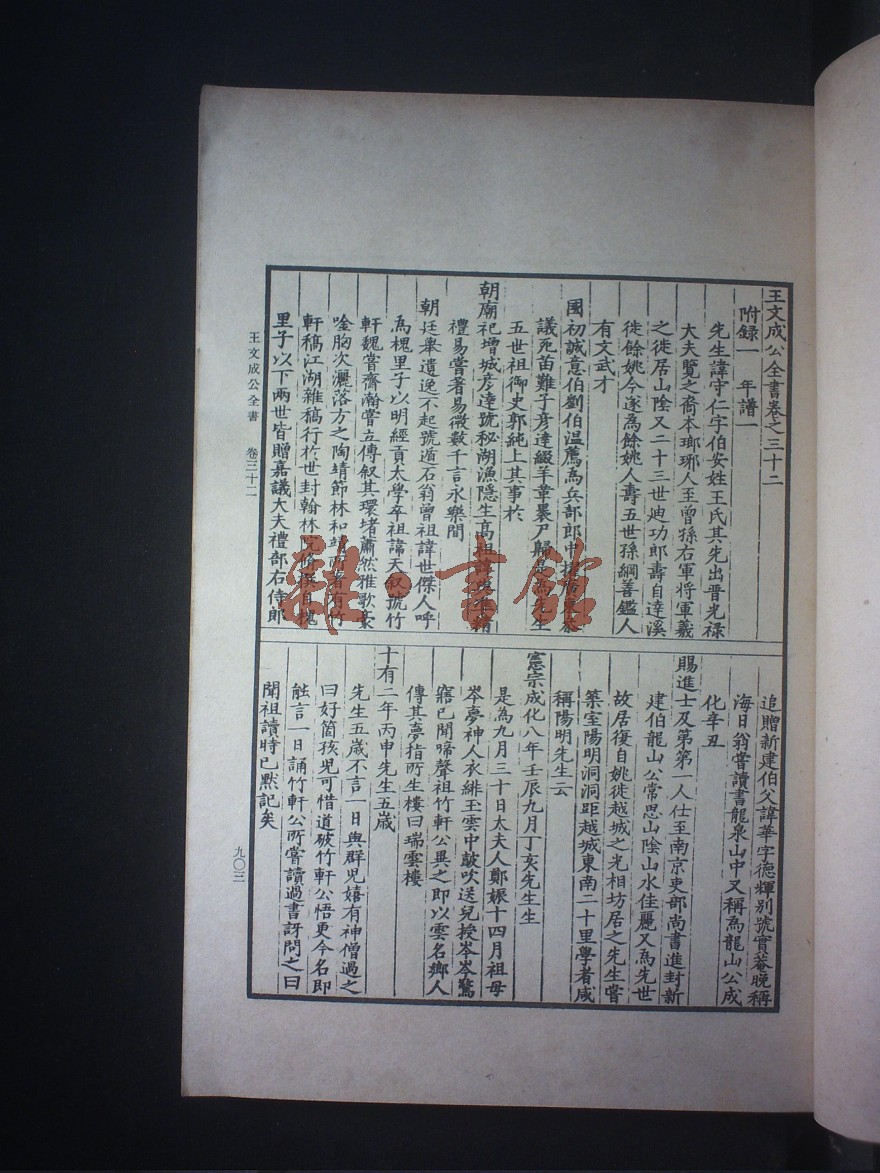 王文成公全書卷之三十二
附録一　年譜一
先生諱守仁字伯安姓王氏其先出晉光祿
大夫覽之裔本瑯琊人王曾孫右軍将軍羲
之徙居山陰又二十三世迪功郎壽自達溪
徙餘姚今遂為餘姚人壽五世孫綱善鑑人
有文武才
國初誠意伯劉伯温薦為兵部郎中擢廣東叅
議死苗難子彦達綴羊革裹尸歸是為先生
五世祖御史郭純上其事於
朝廟祀增城彦達號秘湖漁隱生高祖諱與凖精
禮易嘗著易微數千言永樂間
朝廷舉遺逸不起號遁石翁曾祖諱世傑人呼
為槐里子以明經貢太學卒祖諱天叙號竹
軒魏嘗齋瀚嘗立傳叙其環堵蕭然雅歌豪
唫胸次灑落方之陶靖節林和靖所著有竹
軒稿江湖雜稿行於世封翰林院修撰自槐
里子以下兩世皆贈嘉議大夫禮部右侍郎
追贈新建伯父諱華字德輝别號實菴晚稱
海日翁嘗讀書龍泉山中又稱為龍山公成
化辛丑
賜進士及第第一人仕至南京吏部尚書進封新
建伯龍山公常思山陰山水佳麗又為先世
故居復自姚徙越城之光相坊居之先生嘗
築室陽明洞洞距越城東南二十里學者咸
稱陽明先生云
憲宗成化八年壬辰九月丁亥先生生
是為九月三十日太夫人鄭娠十四月祖母
岑夢神人衣緋玉雲中皷吹送兒授岑岑驚
寤已聞啼聲祖竹軒公異之即以雲名鄉人
傳其夢指所生樓曰瑞雲樓
十有二年丙申先生五歲
先生五歲不言一日與群兒嬉有神僧過之
曰好箇孩兒可惜道破竹軒公悟更今名即
能言一日誦竹軒公所嘗讀過書訝問之曰
聞祖讀時已黙記矣
王文成公全書　卷三十二
九〇三
雜·書館